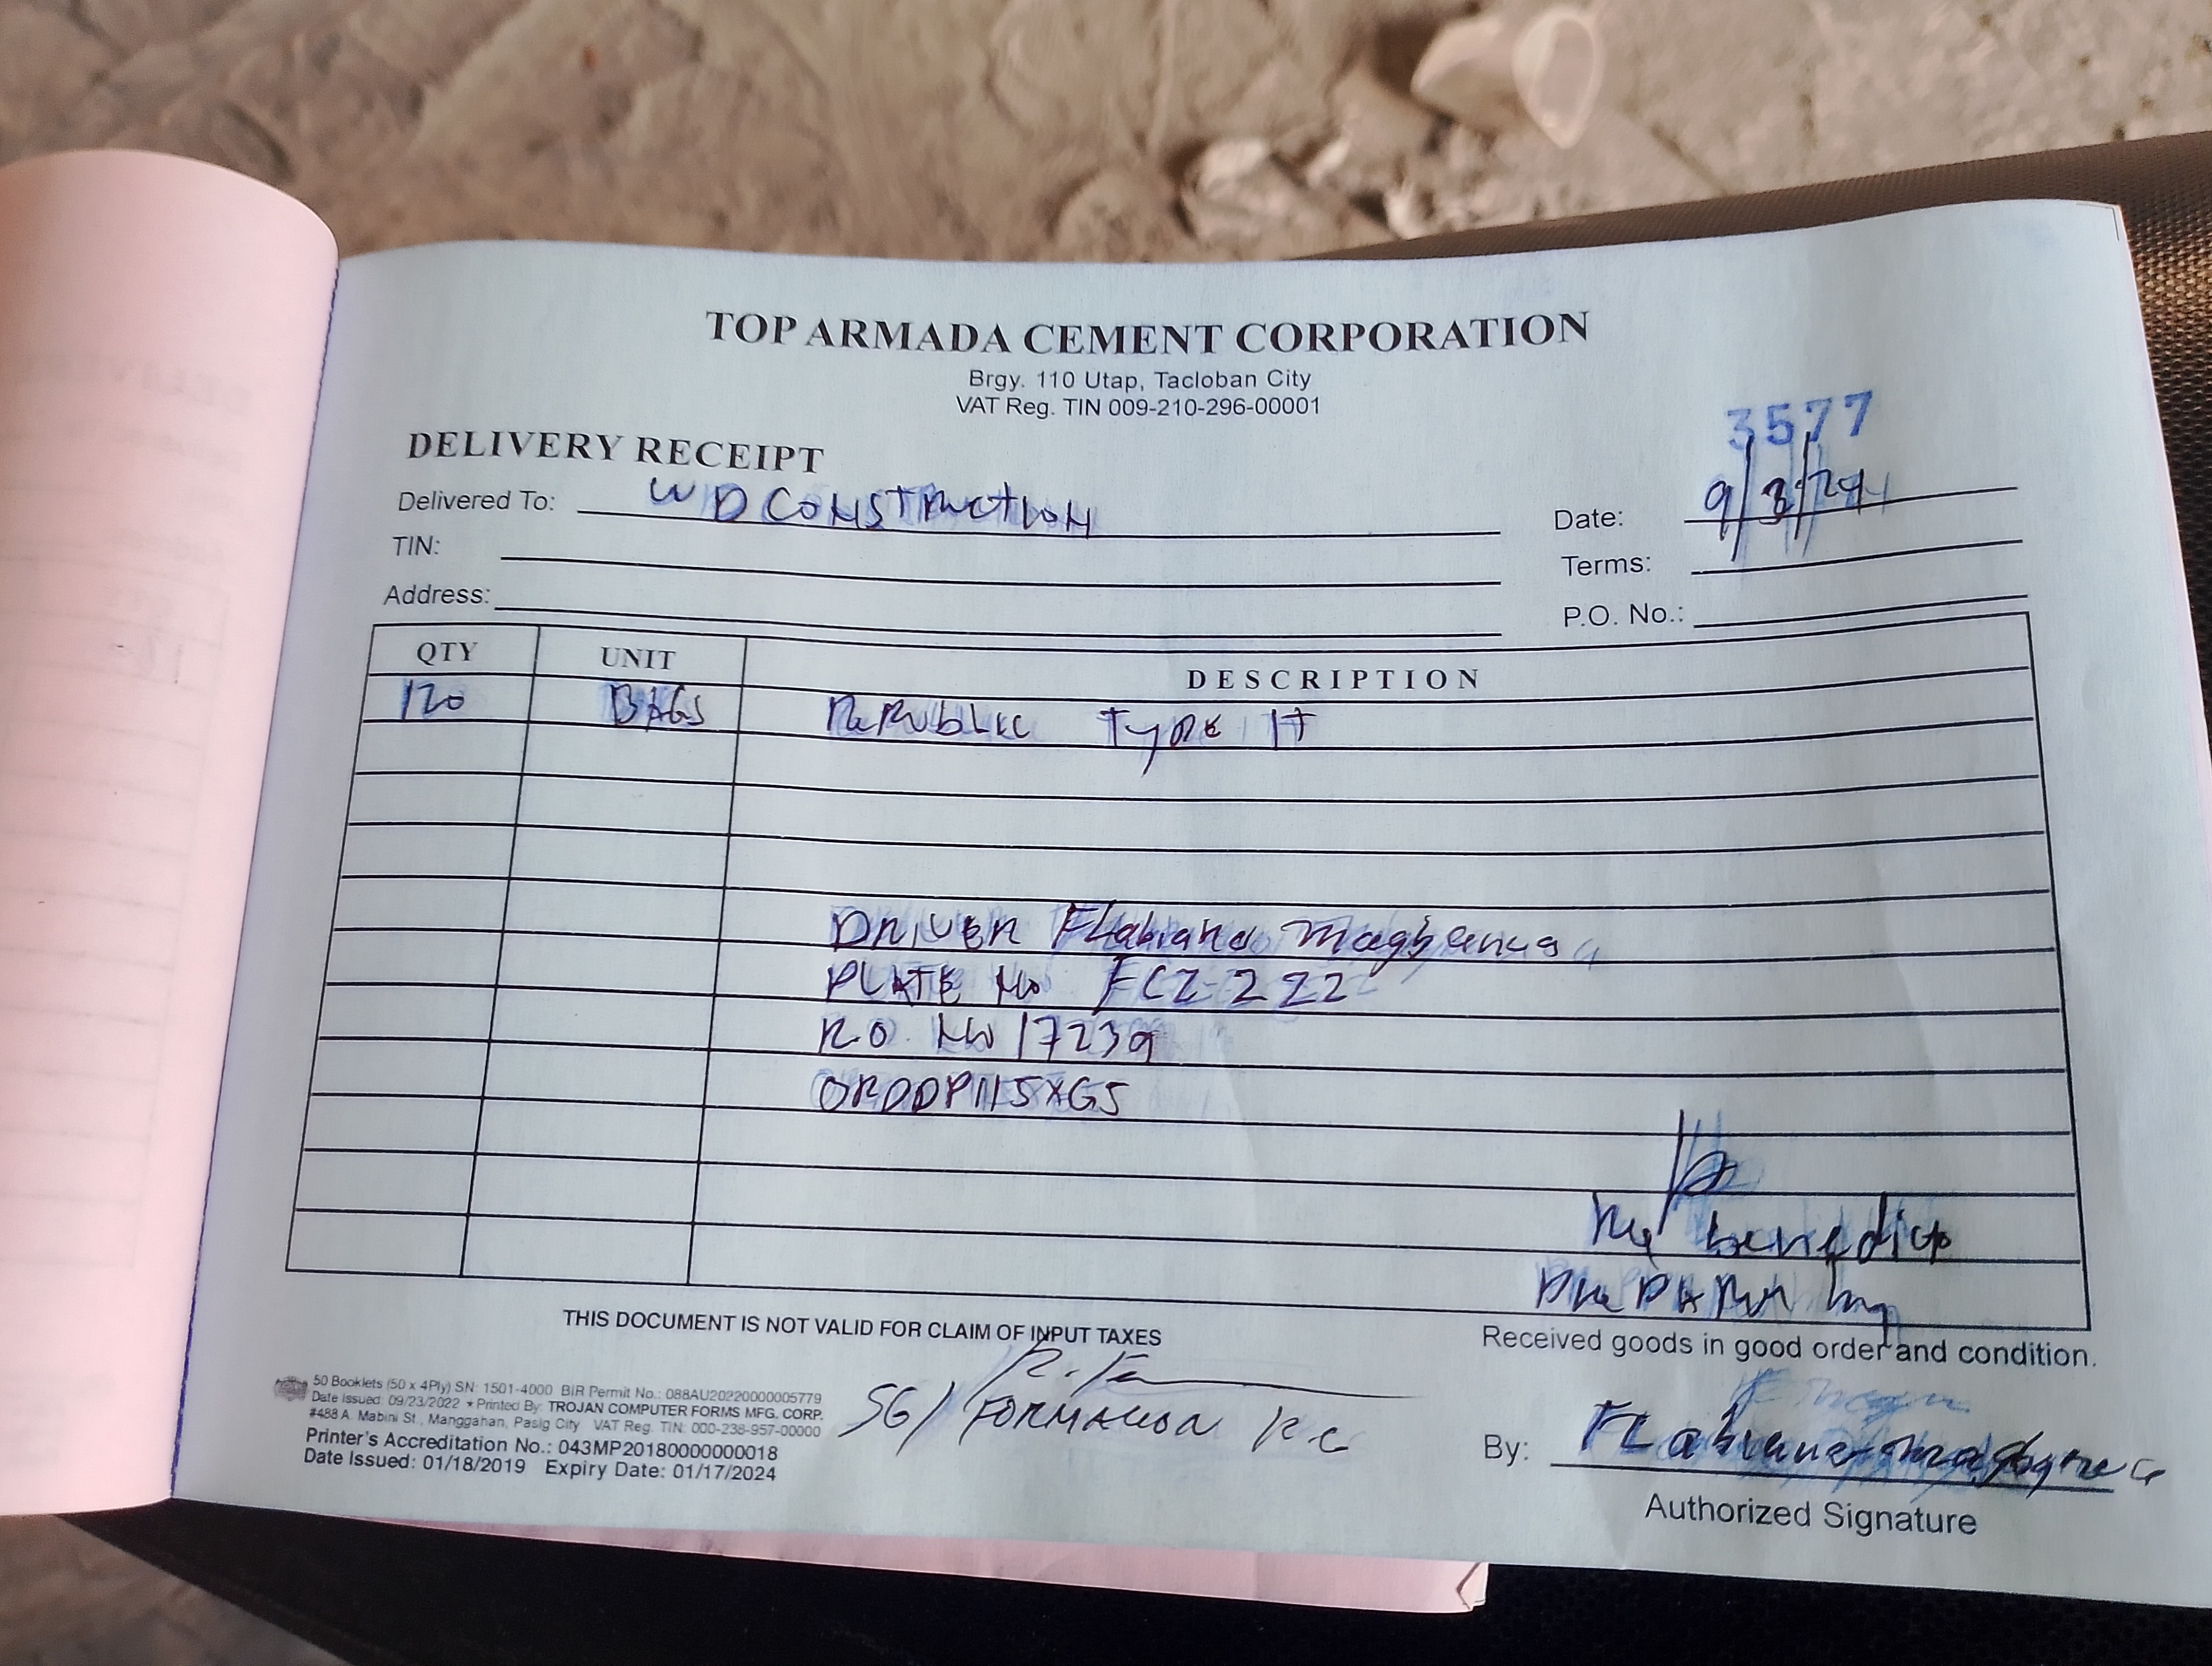 TOP ARMADA CEMENT CORPORATION
Brgy. 110 Utap, Tacloban City
VAT Reg. TIN 009-210-296-00001
3577
DELIVERY RECEIPT
Delivered To: WD CONSTRUCTION
Date: 9/3/24
TIN:
Terms:
Address:
P.O. No.:
QTY UNIT DESCRIPTION
120 BAGS REPUBLIC TYPE 1T
DRIVER FLabiano Magbanua
PLATE No FCZ-222
R.O. No 17239
ORDDP115XG5
benedicto
THIS DOCUMENT IS NOT VALID FOR CLAIM OF INPUT TAXES
Received goods in good order and condition.
50 Booklets (50 x 4Ply) SN: 1501-4000 BIR Permit No.: 088AU20220000005779
Date Issued: 09/23/2022 * Printed By: TROJAN COMPUTER FORMS MFG. CORP.
#488 A. Mabini St., Manggahan, Pasig City VAT Reg. TIN: 000-238-957-00000
Printer's Accreditation No.: 043MP20180000000018
Date Issued: 01/18/2019 Expiry Date: 01/17/2024
SG/ FORMACION R.C
By: FLabiano Magbanua
Authorized Signature